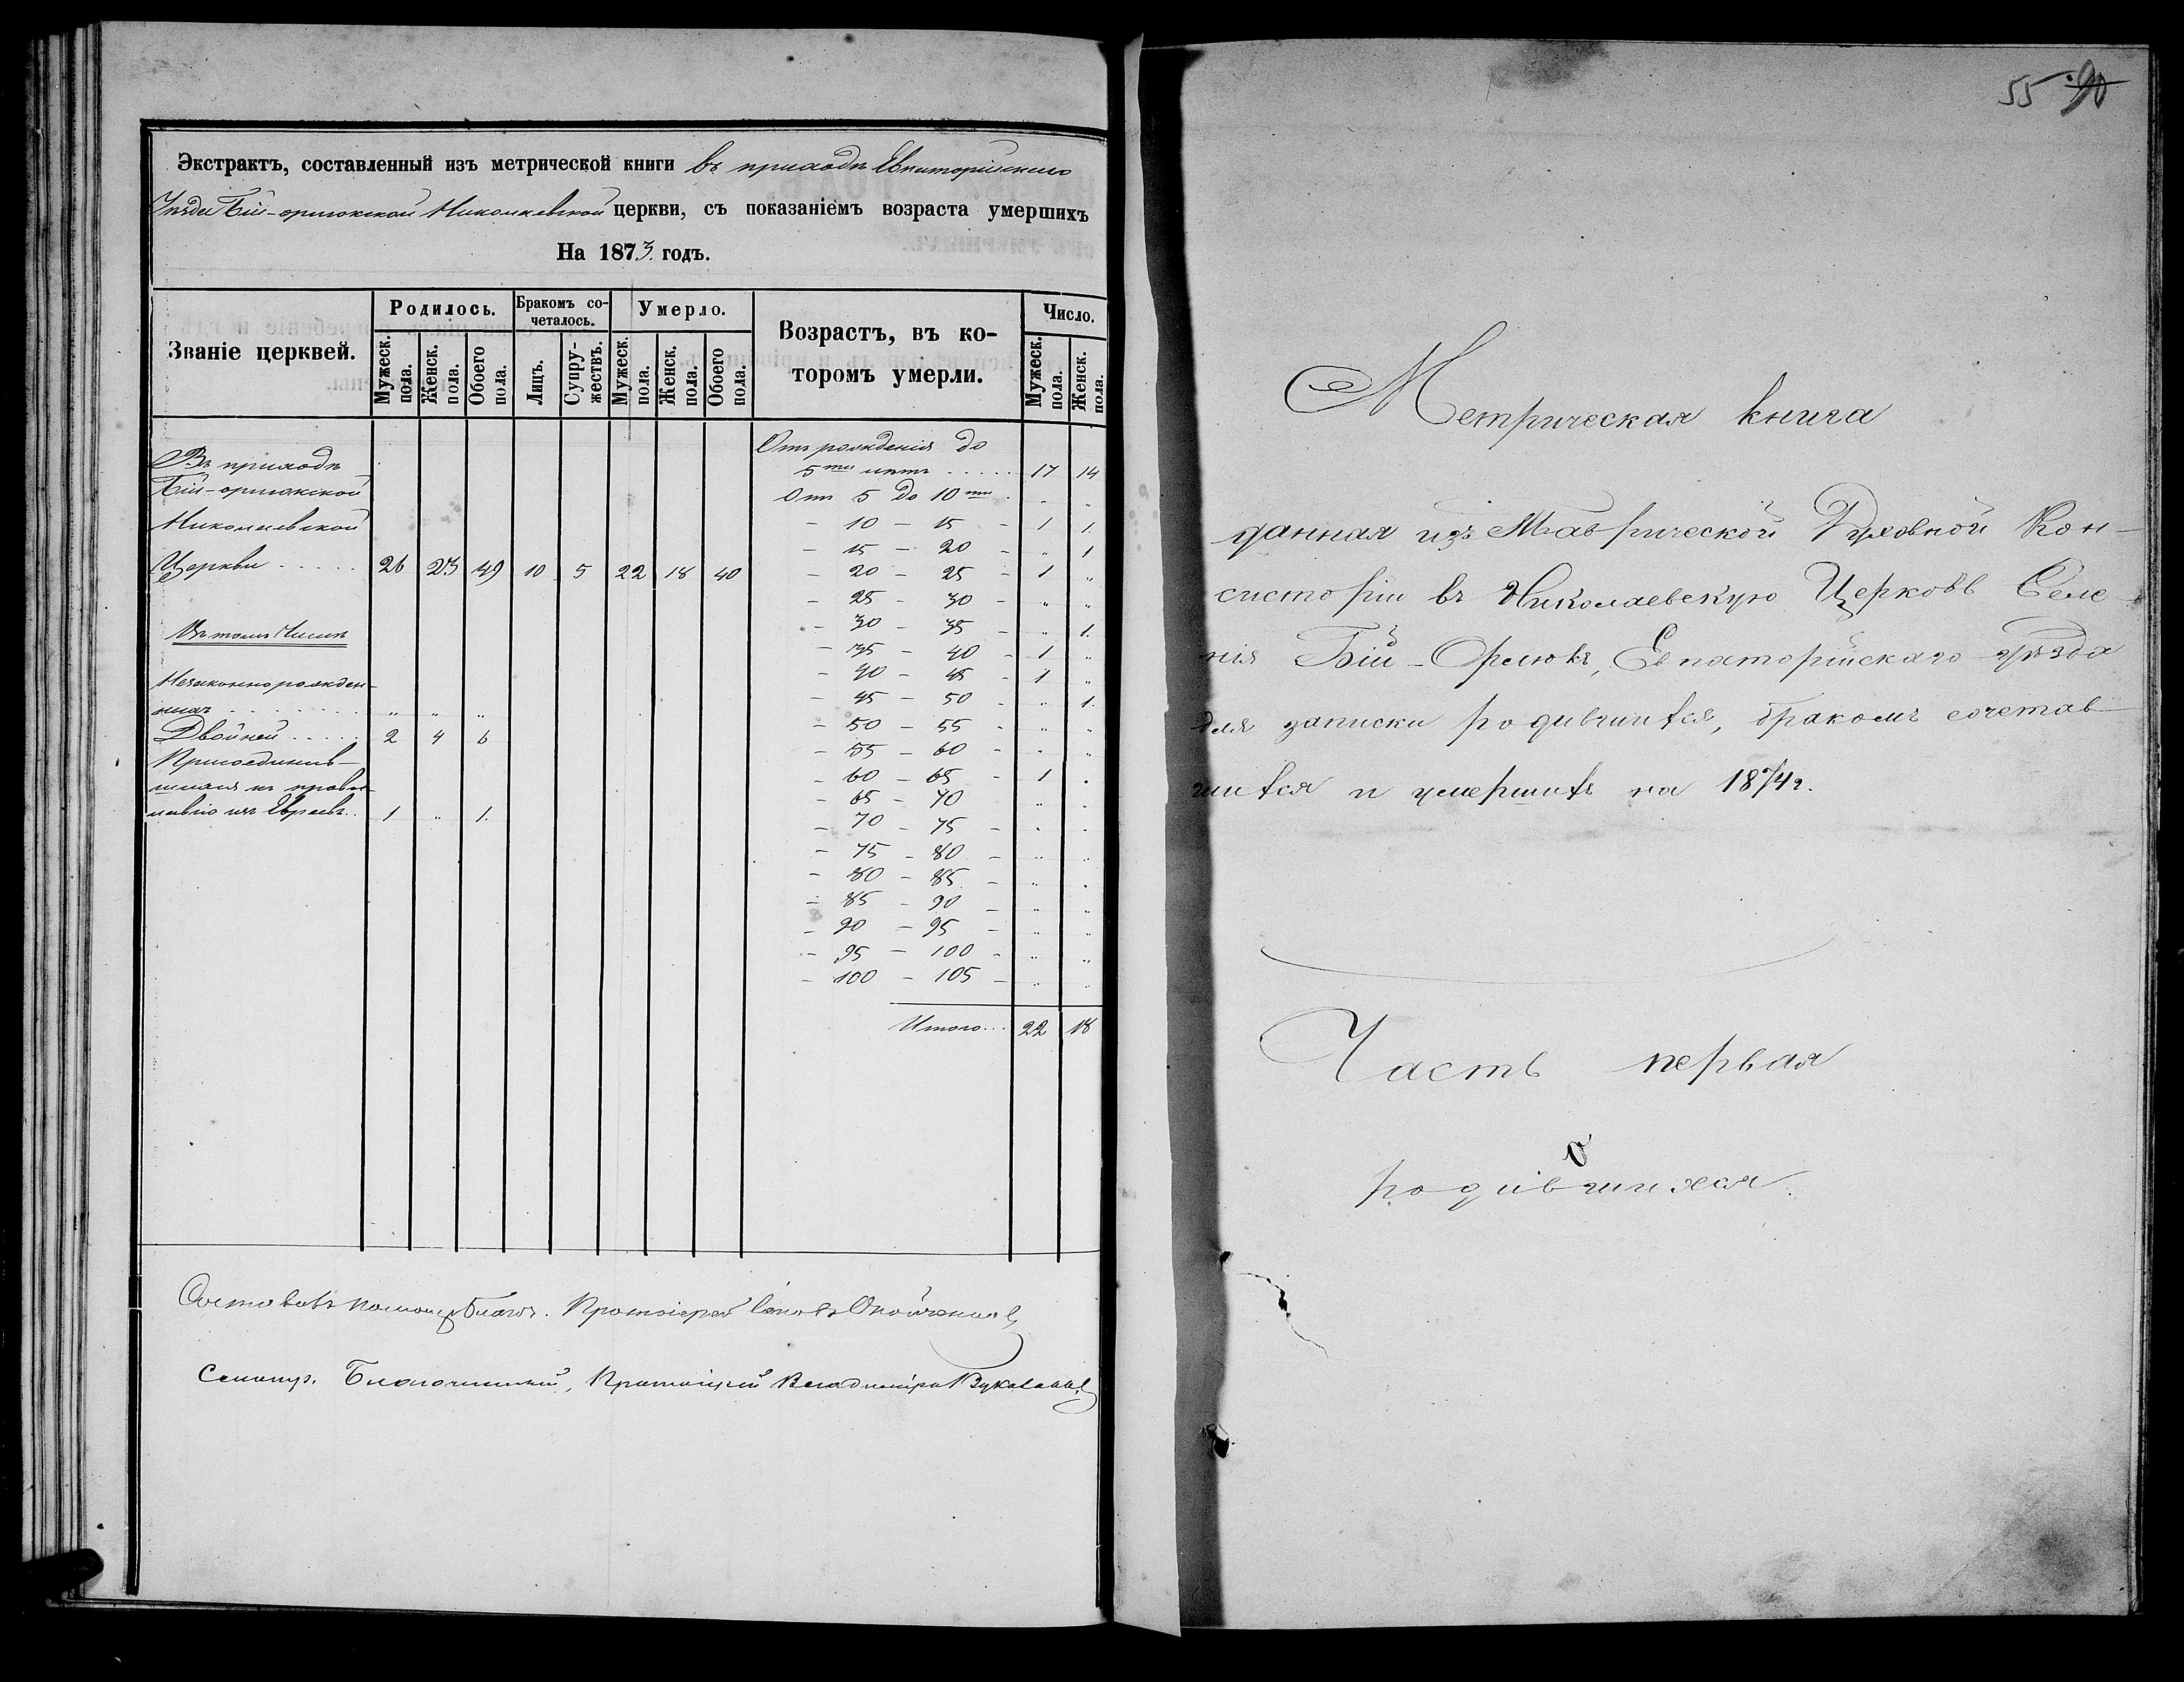 Экстрактъ, составленный изъ метрической книги въ приходѣ Евпаторійскаго
Уѣзда Бій-орлюкской Николаевской церкви, съ показаніемъ возраста умершихъ
На 1873. годъ.
Званіе церквей.
Родилось.
Бракомъ со-
четалось.
Умерло.
Возрастъ, въ ко-
торомъ умерли.
Число.
Мужеск. пола.
Женск. пола.
Обоего пола.
Лицъ.
Супру-
жествъ.
Мужеск. пола.
Женск. пола.
Обоего пола.
Мужеск. пола.
Женск. пола.
Въ приходѣ
Бій-орлюкской
Николаевской
Церкви ..... 26 23 49 10 5 22 18 40
Въ томъ Числѣ
Незаконнорожден-
ныхъ ........ " " "
Двойней ..... 2 4 6
Присоединив-
шихся къ право-
славію изъ Евреевъ.. 1 " 1.
Отъ рожденія до
5ти лѣтъ ..... 17 14
Отъ 5 до 10ти . " "
- 10 - 15 - 1 1.
- 15 - 20 - " 1
- 20 - 25 - 1 "
- 25 - 30 - " "
- 30 - 35 - " 1.
- 35 - 40 - 1 "
- 40 - 45 - 1 "
- 45 - 50 - " 1.
- 50 - 55 - " "
- 55 - 60 - " "
- 60 - 65 - 1 "
- 65 - 70 " "
- 70 - 75 - " "
- 75 - 80 - " "
- 80 - 85 - " "
- 85 - 90 - " "
- 90 - 95 - " "
- 95 - 100 - " "
- 100 - 105 - " "
Итого... 22 18
Составовъ Благоч. Протоіерей
Благочинный, Протоіерей Владиміръ
55 90
Метрическая книга
данная изъ Таврической Духовной Кон-
систоріи въ Николаевскую Церковь Селе-
нія Бій-Орлюкъ, Евпаторійскаго уѣзда
для записки родившихся, бракомъ сочетав-
шихся и умершихъ на 1874 г.
Часть первая
о
родившихся.